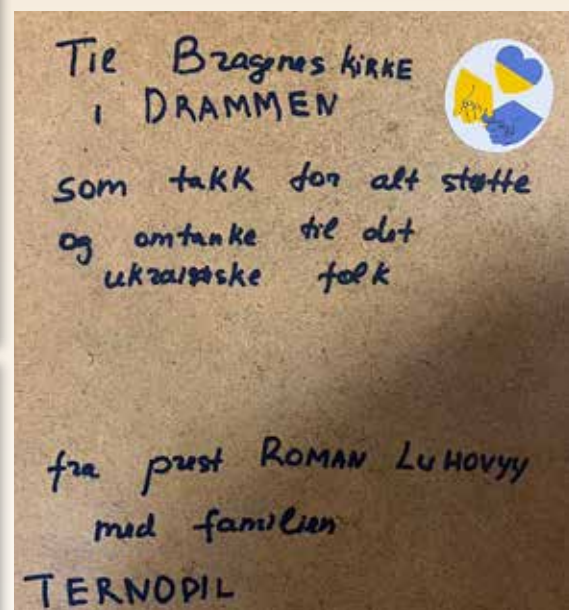 Til Bragenes KIRKE
i DRAMMEN
som takk for alt støtte
og omtanke til det
ukrainske folk
fra prest ROMAN LUHOVYY
med familien
TERNOPIL